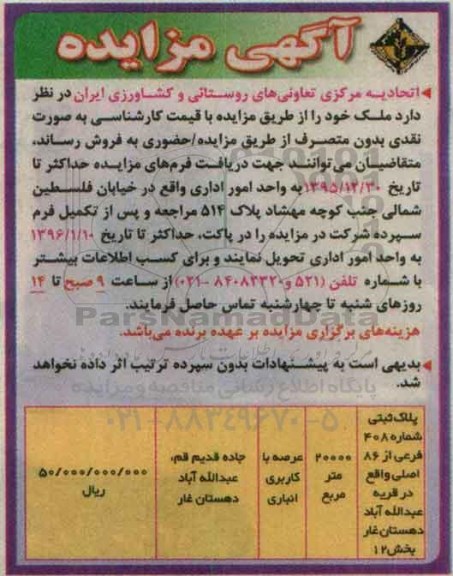 آگهی مزایده
اتحادیه مرکزی تعاونی‌های روستائی و کشاورزی ایران در نظر
دارد ملک خود را از طریق مزایده با قیمت کارشناسی به صورت
نقدی بدون متصرف از طریق مزایده/حضوری به فروش رساند،
متقاضیان می‌توانند جهت دریافت فرم‌های مزایده حداکثر تا
تاریخ ۱۳۹۵/۱۲/۳۰ به واحد امور اداری واقع در خیابان فلسطین
شمالی جنب کوچه مهشاد پلاک ۵۱۴ مراجعه و پس از تکمیل فرم
سپرده شرکت در مزایده را در پاکت، حداکثر تا تاریخ ۱۳۹۶/۱/۱۰
به واحد امور اداری تحویل نمایند و برای کسب اطلاعات بیشتر
با شماره تلفن (۵۲۱ و ۸۴۰۸۳۳۲۰ -۰۲۱) از ساعت ۹ صبح تا ۱۴
روزهای شنبه تا چهارشنبه تماس حاصل فرمایند.
ParsNamadData
هزینه‌های برگزاری مزایده بر عهده برنده می‌باشد.
بدیهی است به پیشنهادات بدون سپرده ترتیب اثر داده نخواهد
شد.
پایگاه اطلاع رسانی مناقصه و مزایده
۰۲۱-۸۸۳۴۹۶۷۰-۵
پلاک ثبتی
شماره ۴۰۸
فرعی از ۸۶
اصلی واقع
در قریه
عبدالله آباد
دهستان غار
بخش ۱۲
۲۰۰۰۰
متر
مربع
عرصه با
کاربری
انباری
جاده قدیم قم،
عبدالله آباد
دهستان غار
۵۰/۰۰۰/۰۰۰/۰۰۰
ریال